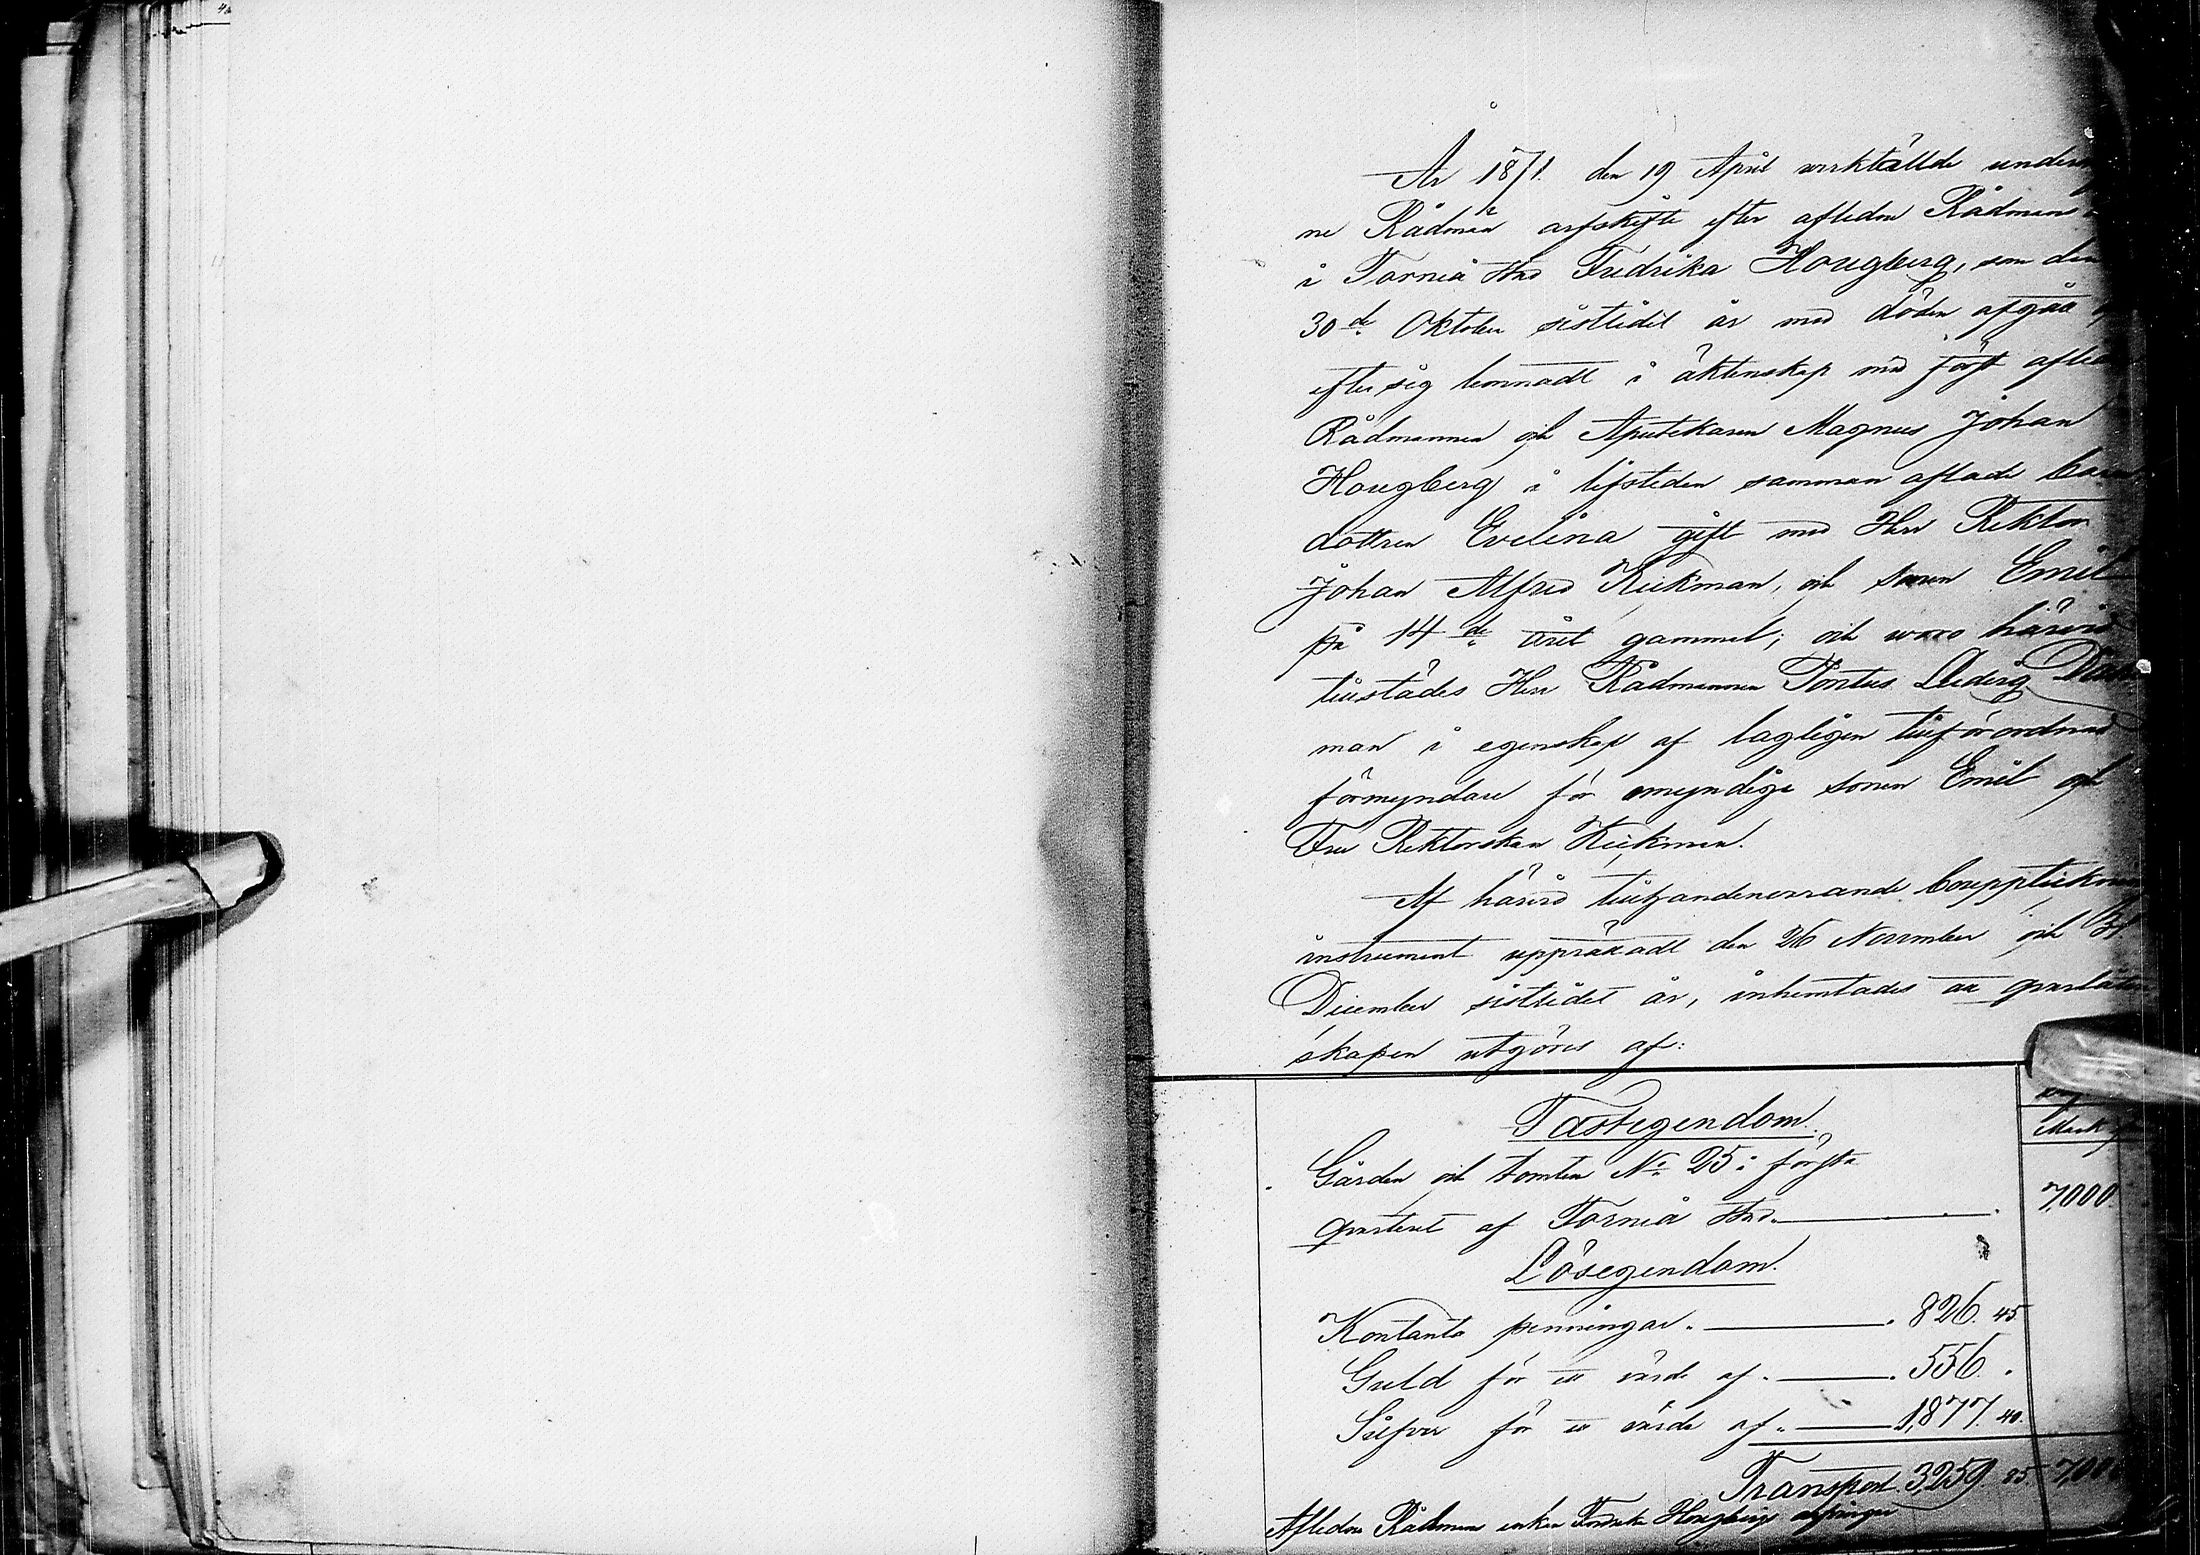 År 1871. den 19 April verkställde underteckna
ne Rådmän arfskifte efter aflidna Rådmans
i Torneå stad Fredrika Hougberg, som den
30de Oktober sistlidit år med döden afgått
efter sig lemnadt i äktenskap med förut aflid
Rådmannen och Apotekaren Magnus Johan
Hougberg i lifstiden samman aflade barn
dottren Evelina gift med Herr Rektor
Johan Alfred Kiekman, och sonen Emil
på 14de året gammal; och woro härvid
tillstädes Herr Rådmannen Pontus Ludvig
man i egenskap af lagligen tillförordnad
förmyndare för omyndige sonen Emil och
Fru Rektorskan Kiekman.
Af härvid tillhandenvarande bouppteckning
instrument upprättadt den 26 November och
December sistlidet år, inhemtades att qvarlåten
skapen utgöres af:
Mark
Fastegendom.
Gården och tomten No 25 i första
qvarteret af Torneå stad. 7,000.
Lösegendom.
Kontanta penningar. 826. 45
Guld för ett värde af. 556.
Silfver för ett värde af. 1,877. 40.
Transport. 3,259. 85. 7,000
Aflidne Rådmans enkan Fredrika Hougbergs arfvingar